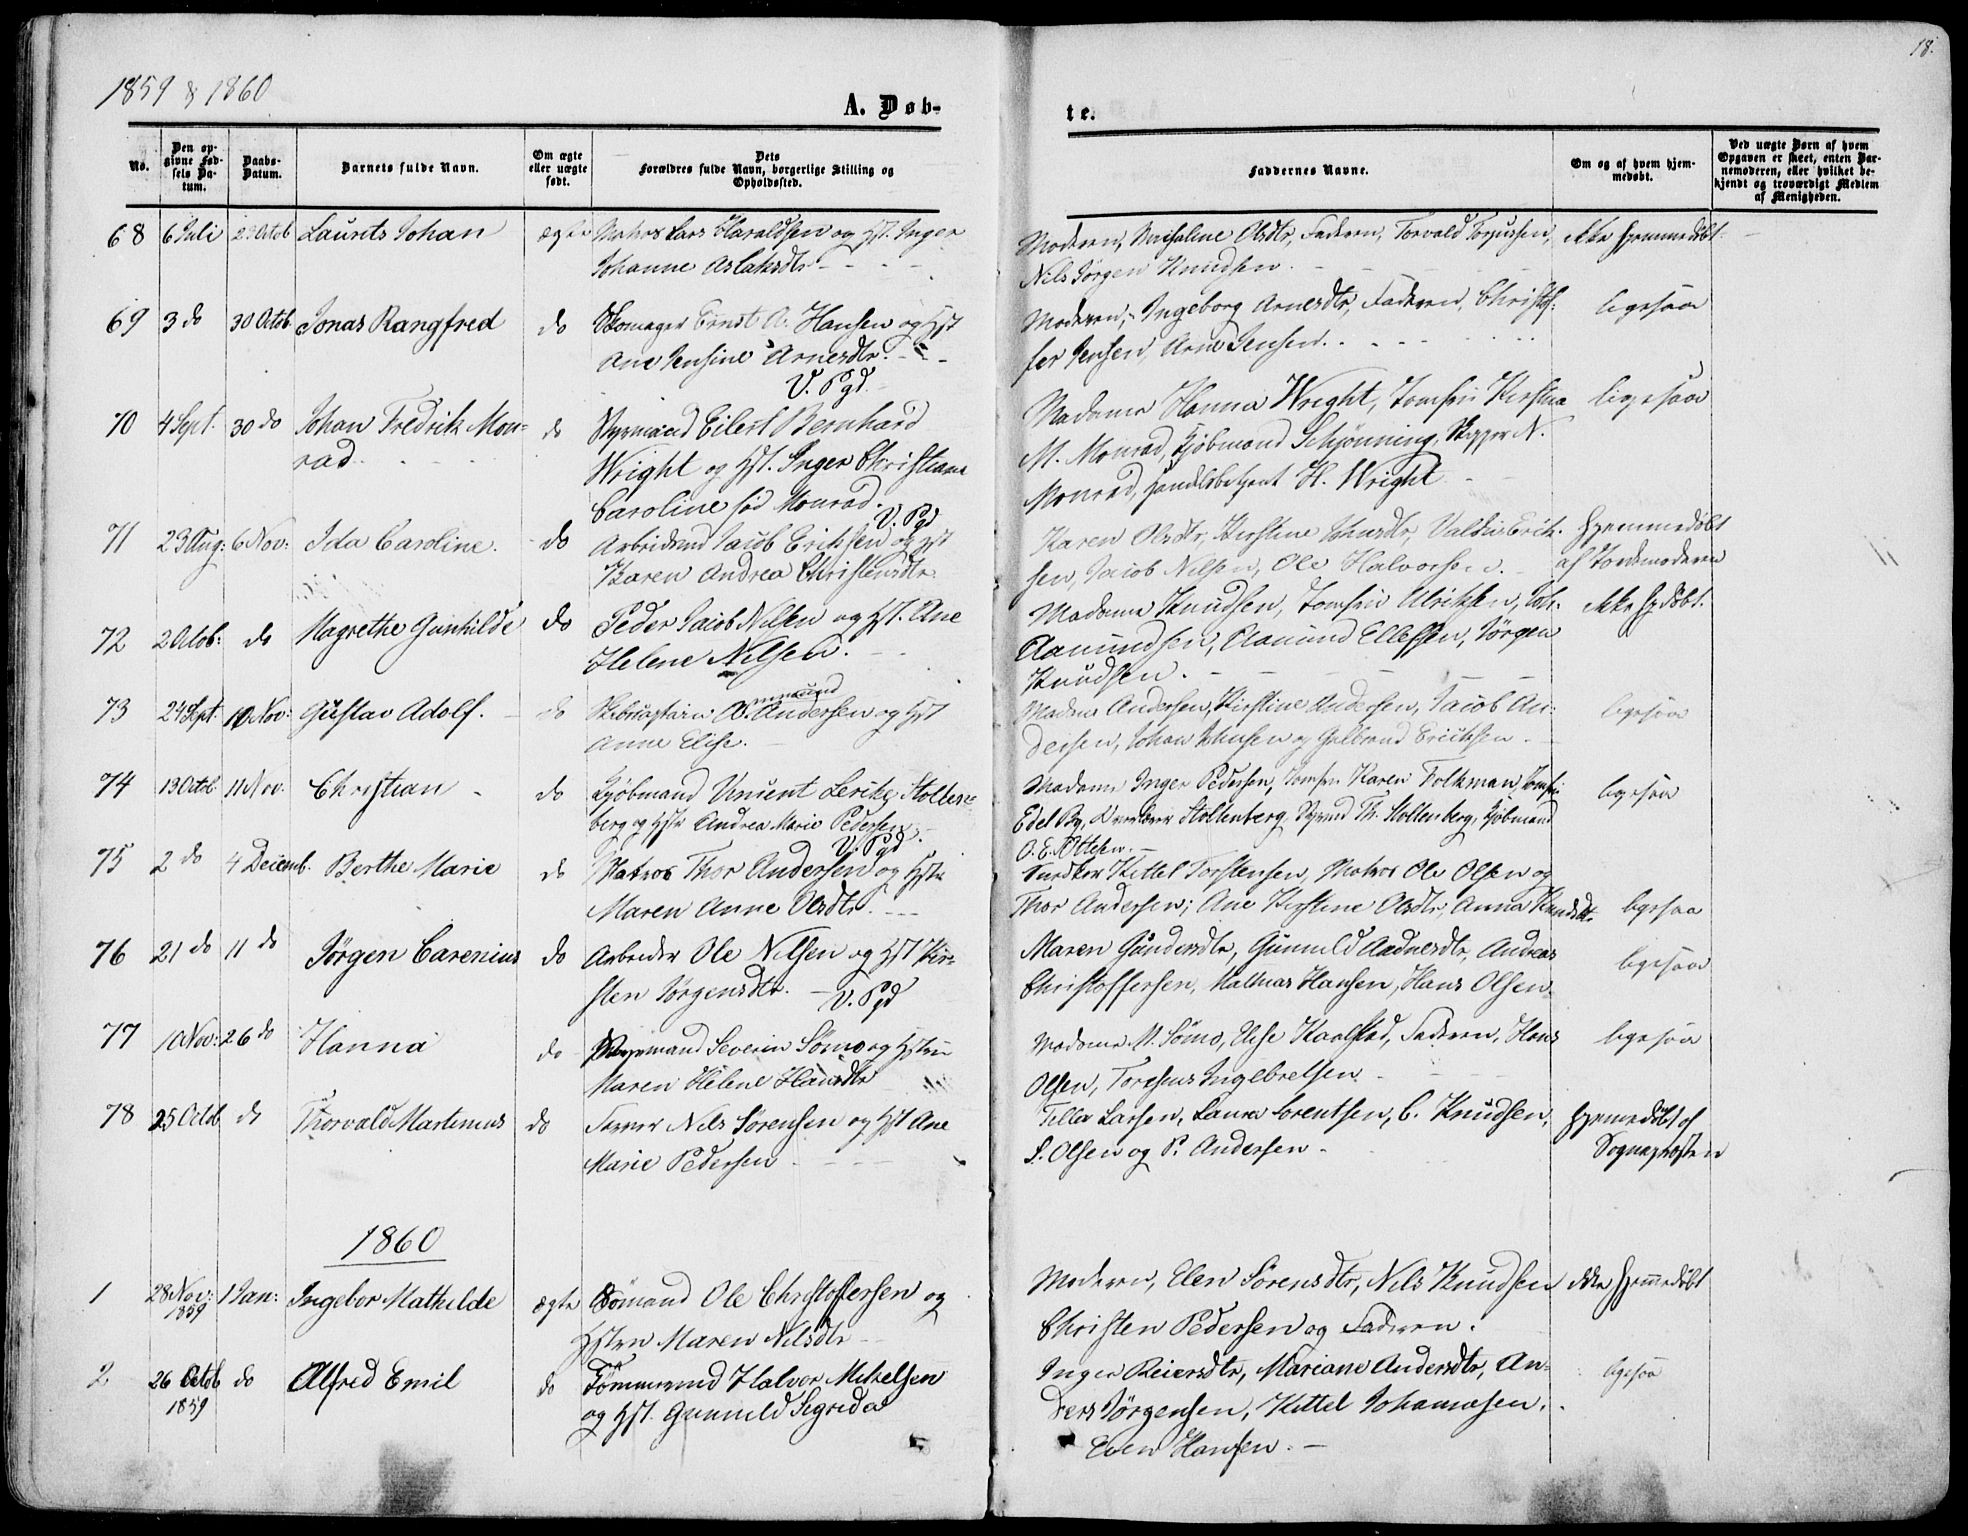 1859 & 1860
18.
A. Døb-
te.
No.
Den op-
givne Fød-
sels Da-
tum.
Daabs-
Datum.
Barnets fulde Navn.
Om ægte
eller uægte
født.
Dets
Forældres fulde Navn, borgerlige Stilling og
Opholdssted.
Faddernes Navne.
Om og af hvem hjem-
medøbt.
Ved uægte Børn af hvem
Opgaven er skeet, enten Bar-
nemoderen, eller hvilket be-
kjendt og troværdigt Medlem
af Menigheden.
68 6 Juli 29 Octob Laurits Johan ægte Matros Lars Haraldsen og Hst. Inger
Johanne Aslaksdtr
Moderen, Olsdtr, Faderen, Torvald Torjussen, ikke hjemmedøbt.
Nils Jørgen Knudsen.
69 3 do 30 Octob. Jonas Rangfred do Skomager Ernst A. Hansen og Hst
Ane Jensine Arnesdtr.
V. Pgd.
Moderen, Ingeborg Arnesdtr, Faderen, Christof-
fer Jensen, Arne Jensen. ligesaa
70 4 Sept. 30 do Johan Fredrik Mon-
rad do Styrmand Eilert Bernhard
Wright og Hst. Inger Christiane
Caroline fød Monrad.
V. Pgd
Madame Hanna Wright, Jomfru Kirstine
M. Monrad, Kjøbmand Schjønning, Skipper N.
Monrad, Handelsbetjent H. Wright ligesaa
71 23 Aug: 6 Nov: Ida Caroline. do Arbeidsmd Jacob Eriksen og Hst
Karen Andrea Christensdtr
Karen Olsdtr, Kirstine Johnsdtr, Erik-
sen, Jacob Nilsen, Ole Halvorsen. Hjemmedøbt
af Jordemoderen
72 2 Octob: do Magrethe Gunhilde do Peder Jacob Nilsen og Hst. Ane
Helene Nilsen.
Madame Knudsen, Jomfru Ulriksen, Joh.
Aamundsen, Aanund Ellefsen, Jørgen
Knudsen. ikke hjdøbt.
73 24 Sept. 10 Nov: Gustav Adolf. do Andersen og Hst
Anne Elise.
Madme Andersen, Kirstine Andersen, Jacob An-
dersen, Johan Johnsen og Gulbrand Eriksen. ligesaa
74 13 Octob 11 Nov. Christian do Kjøbmand Vincent Lerche Stolten-
berg og Hstr Andrea Marie Pedersen.
V. Pgd.
Madame Inger Pedersen, Jomfru Karen Folkman, Jomfru
Edel By, Stoltenberg, Styrmd Th. Stoltenberg, Kjøbmand
O. E. Ottesen. ligesaa
75 2 do 4 Decemb. Berthe Marie do Matros Thor Andersen og Hstr
Maren Anne Olsdtr.
Snedker Kittel Torstensen, Matros Ole Olsen og
Thor Andersen; Ane Kirstine Olsdtr, Anna Knudsdtr. ligesaa
76 21 do 11 do Jørgen Carenius do Arbeider Ole Nilsen og Hst Kir-
sten Jørgensdtr.
V. Pgd
Maren Gundersdtr, Gunnild Aadnesdtr, Andreas
Christoffersen, Halmar Hansen, Hans Olsen. ligesaa
77 10 Nov: 26 do Hanna do Styrmand Severin Sømo og Hstru
Maren Helene Hansdtr
Madame M. Sømo, Else Kaalstad, Faderen, Hans
Olsen, Torgerus Ingebretsen ligesaa
78 25 Octob do Thorvald Martinius do Farver Nils Sørensen og Hst Ane
Marie Pedersen
Tilla Larsen, Laura Lorentsen, C. Knudsen,
S. Olsen og P. Andersen. Hjemmedøbt af
Sognepræsten
1860
1 28 Nov:
1859 1 Jan: Ingebor Mathilde ægte Sømand Ole Christoffersen og
Hstru Maren Nilsdtr
Moderen, Elen Sørensdtr, Nils Knudsen
Christen Pedersen og Faderen. ikke hjemmedøbt
2 26 Octob
1859 do Alfred Emil do Tømmermd Halvor Mikelsen
og Hst. Gunnild Segrida
Inger Reiersdtr, Mariane Andersdtr, An-
ders Jørgensen, Kittel Johannesen,
Even Hansen. ligesaa